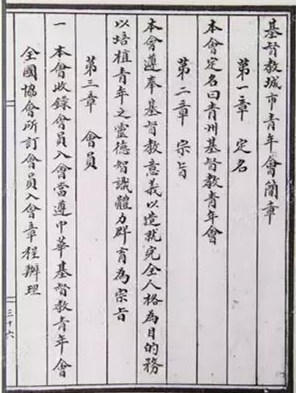 基督教城市青年會簡章
第一章 定名
本會定名曰青州基督教青年會
第二章 宗旨
本會遵奉基督教意義以造就完全人格為目的務
以培植青年之靈德智識體力群育為宗旨
第三章 會員
一 本會收錄會員入會當遵中華基督教青年會
全國協會所訂會員入會章程辦理
三十六